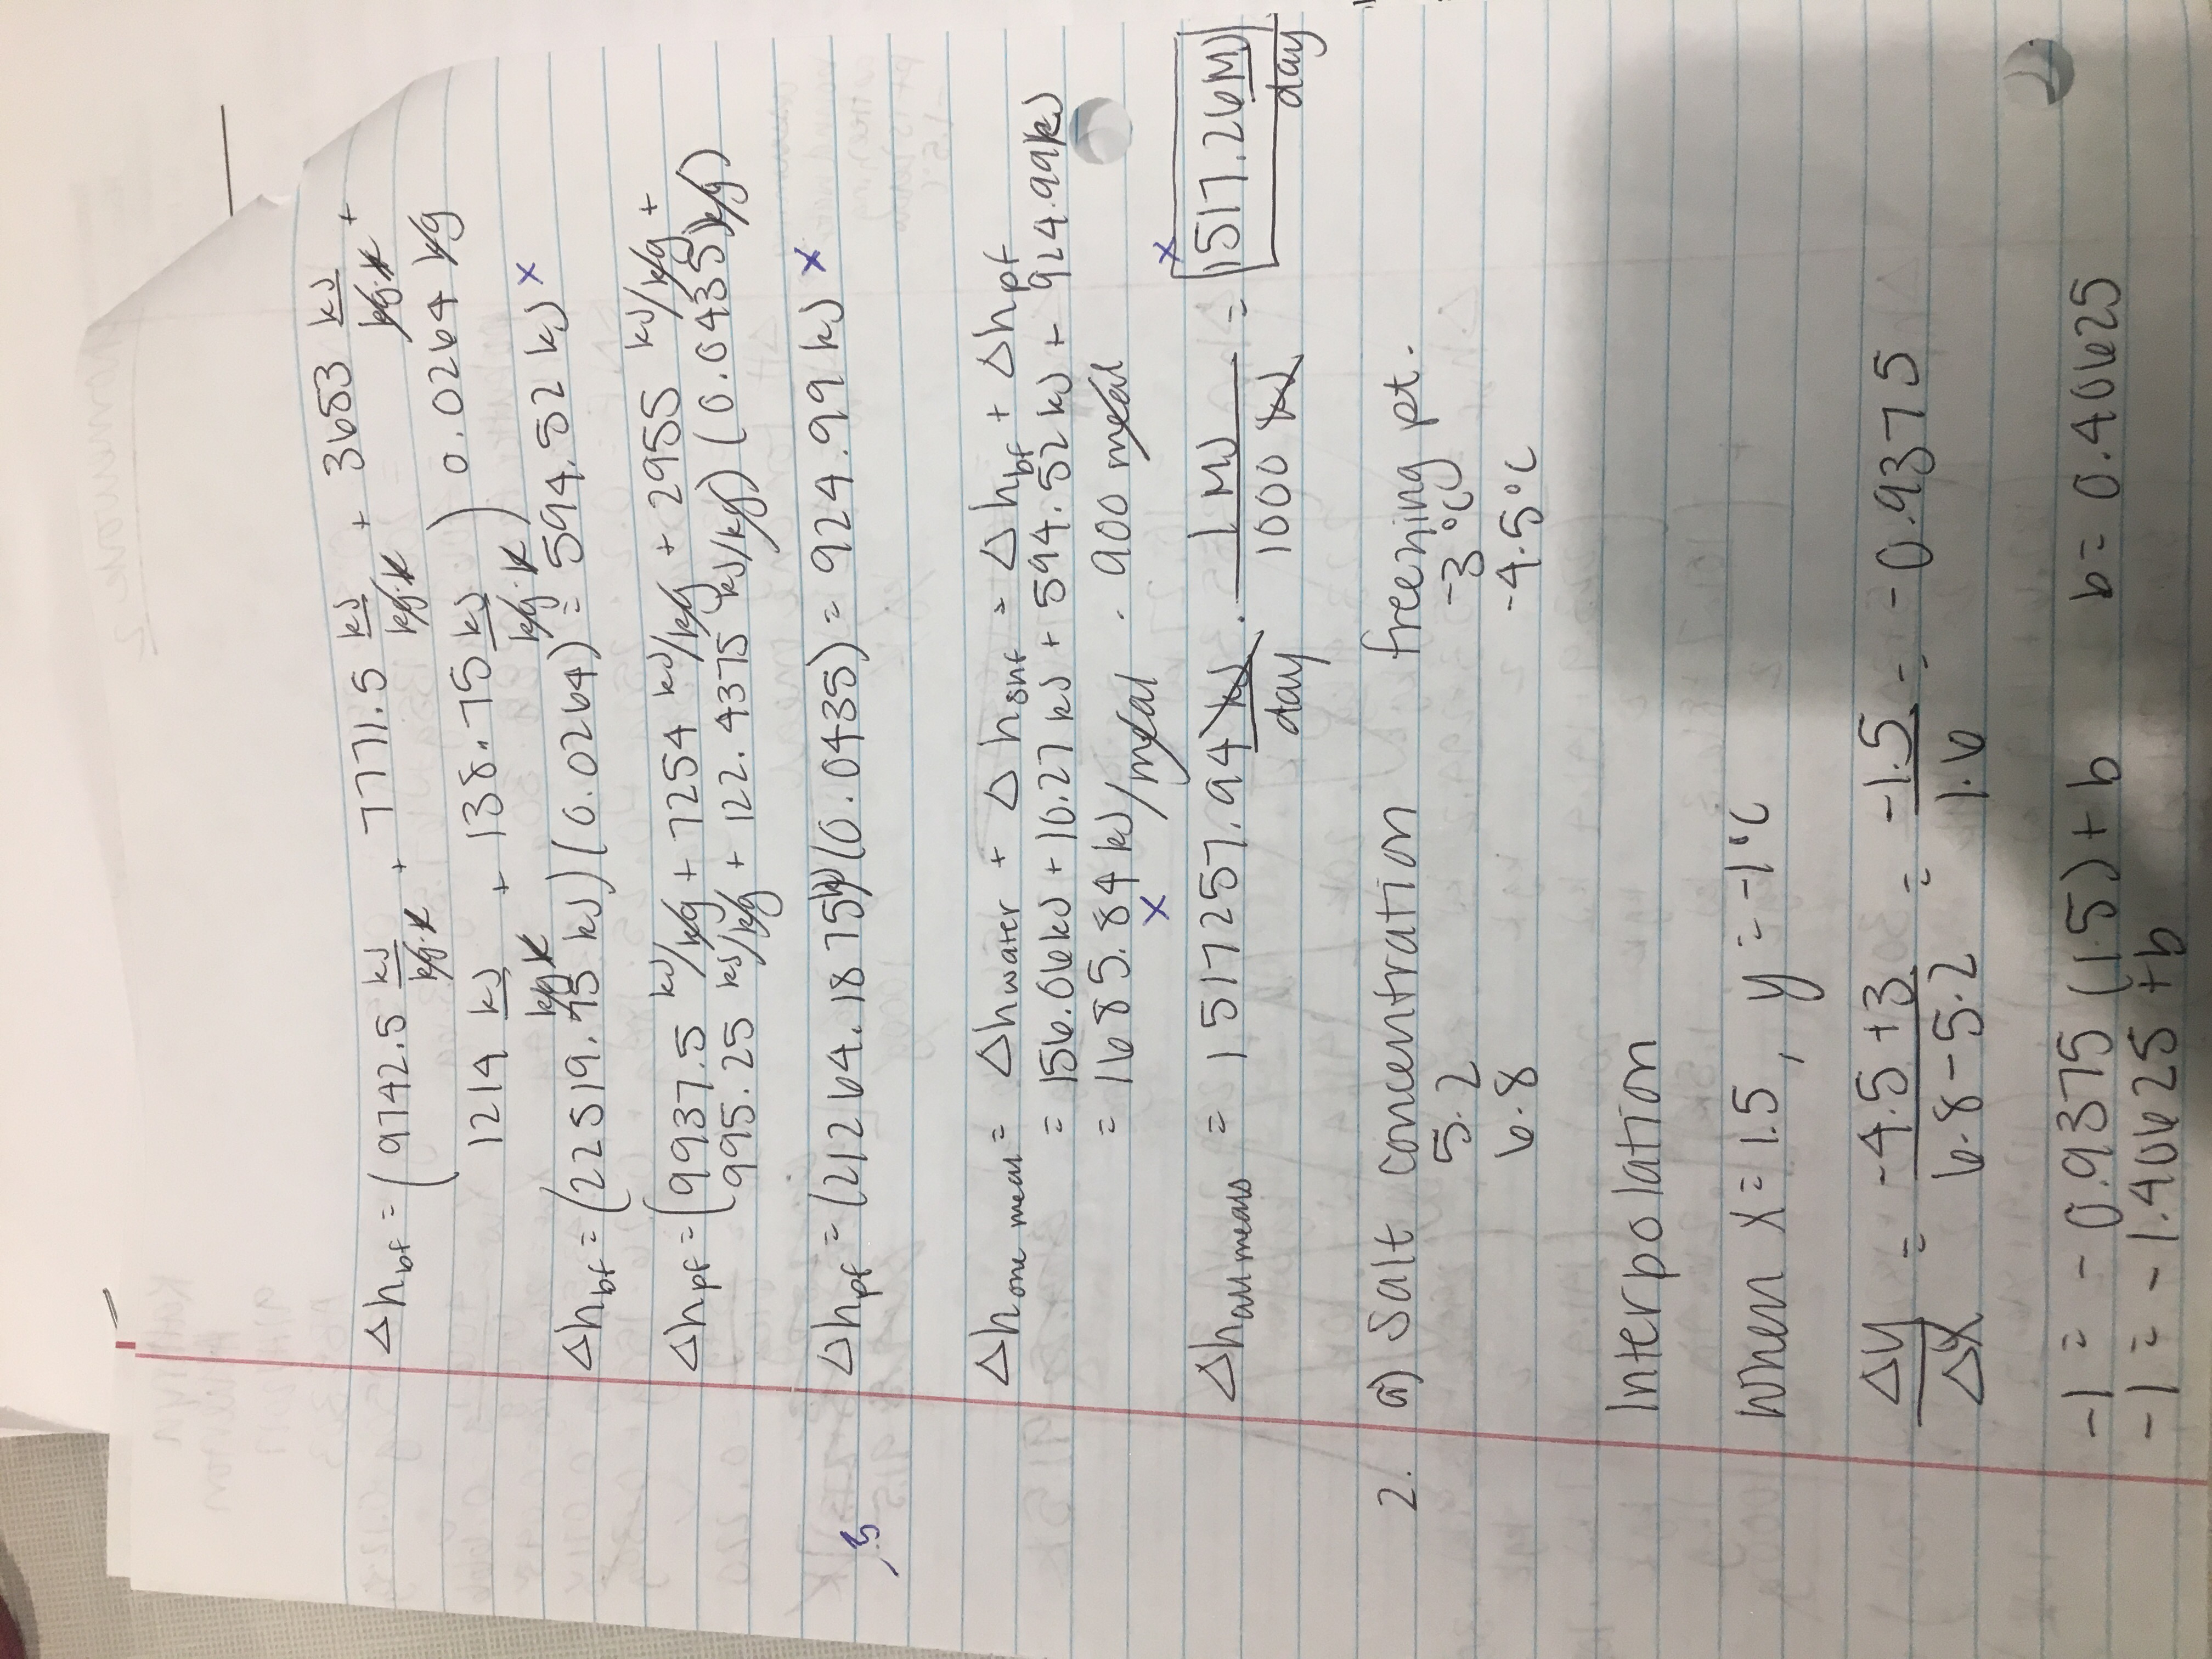 Homework 2
Δh_bf = (9742.5 kJ/kg·K + 7771.5 kJ/kg·K + 3653 kJ/kg·K +
1214 kJ/kg K + 138.75 kJ/kg·K) 0.0264 kg
Δh_bf = (22519.75 kJ)(0.0264) = 594.52 kJ x
Δh_pf = (9937.5 kJ/kg + 7254 kJ/kg + 2955 kJ/kg +
995.25 kJ/kg + 122.4375 kJ/kg) (0.0435 kg)
Δh_pf = (21264.1875 kJ)(0.0435) = 924.99 kJ x
-.5
Δh_one meal = Δh_water + Δh_snf = Δh_bf + Δh_pf
= 156.06 kJ + 10.27 kJ + 594.52 kJ + 924.99 kJ
= 1685.84 kJ/meal · 900 meal
x
x
Δh_all meals = 1517257.94 kJ/day · 1 MJ/1000 kJ = 1517.26 MJ/day
2. a) Salt concentration freezing pt.
5.2 -3°C
6.8 -4.5°C
Interpolation
when x = 1.5, y = -1°C
Δy/Δx = -4.5+3/6.8-5.2 = -1.5/1.6 = -0.9375
-1 = -0.9375 (1.5) + b b = 0.40625
-1 = -1.40625 + b